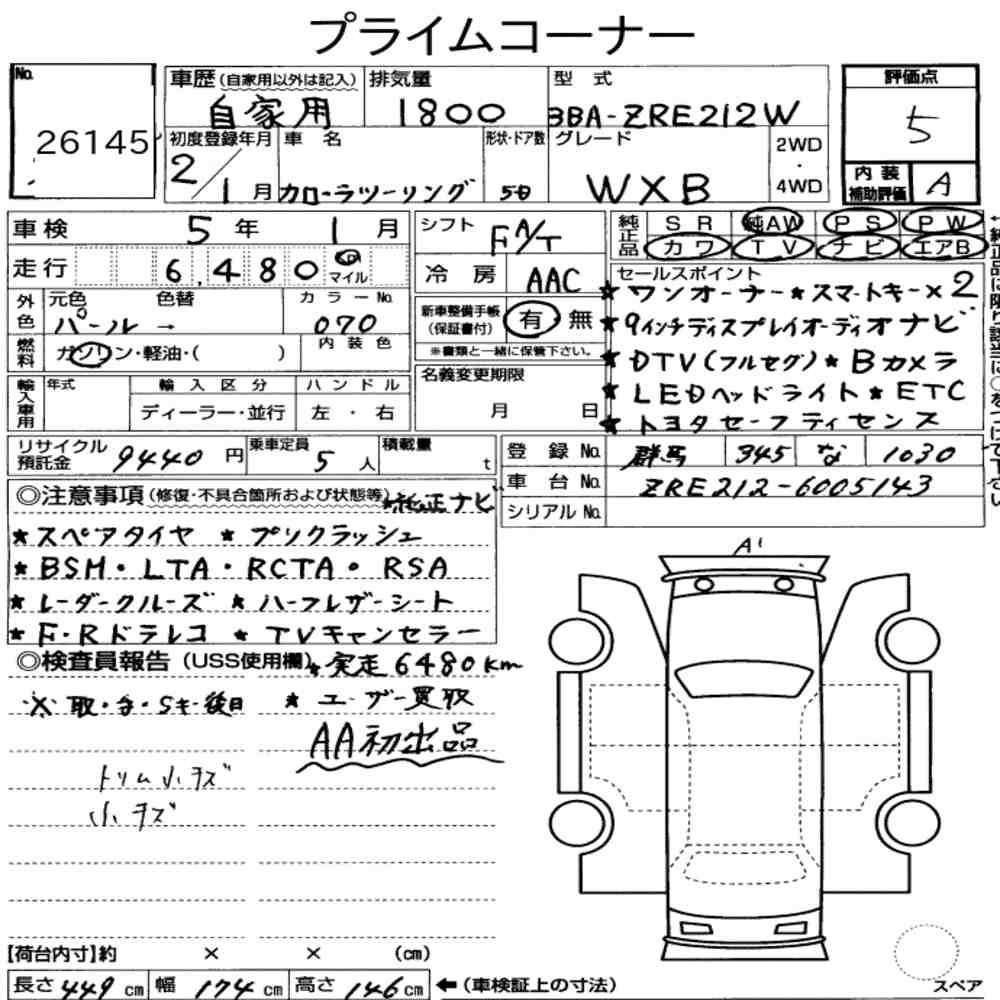 プライムコーナー
No. 26145
車歴(自家用以外は記入) 自家用
排気量 1800
型式 3BA-ZRE212W
評価点 5
初度登録年月 2/1月
車名 カローラツーリング
形状・ドア数 5D
グレード WXB
2WD・4WD
内装補助評価 A
車検 5年 1月
シフト FA/T
純正品 SR 純AW PS PW
カワ TV ナビ エアB
走行 6,480 マイル
冷房 AAC
セールスポイント
★ワンオーナー★スマートキー×2
外色 元色 色替 カラーNo.
パール→ 070
新車整備手帳(保証書付) 有 無
★9インチディスプレイオーディオナビ
燃料 ガソリン・軽油・( ) 内装色
※書類と一緒に保管下さい。
★DTV(フルセグ)★Bカメラ
名義変更期限 月 日
★LEDヘッドライト★ETC
輸入車用 年式 輸入区分 ハンドル
ディーラー・並行 左・右
★トヨタセーフティセンス
リサイクル預託金 9440円
乗車定員 5人
積載量 t
登録No. 群馬 345 な 1030
車台No. ZRE212-6005143
シリアルNo.
◎注意事項(修復・不具合箇所および状態等)★純正ナビ
★スペアタイヤ ★プリクラッシュ
★BSM・LTA・RCTA・RSA
★レーダークルーズ ★ハーフレザーシート
★F・Rドラレコ ★TVキャンセラー
◎検査員報告(USS使用欄)★実走6480km
※取・台・Sキ・後日 ★ユーザー買取
AA初出品
トリム小キズ
小キズ
A1
【荷台内寸】約 × × (cm)
長さ 449cm 幅 174cm 高さ 146cm ←(車検証上の寸法)
スペア